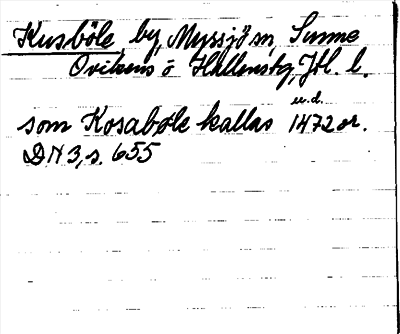 Kusböle, by, Myssjö sn, Sunne
Ovikens o Hallenstg, Jtl. l.
u.d.
som Kosaböle kallas 1472 or.
DN 3, s. 655